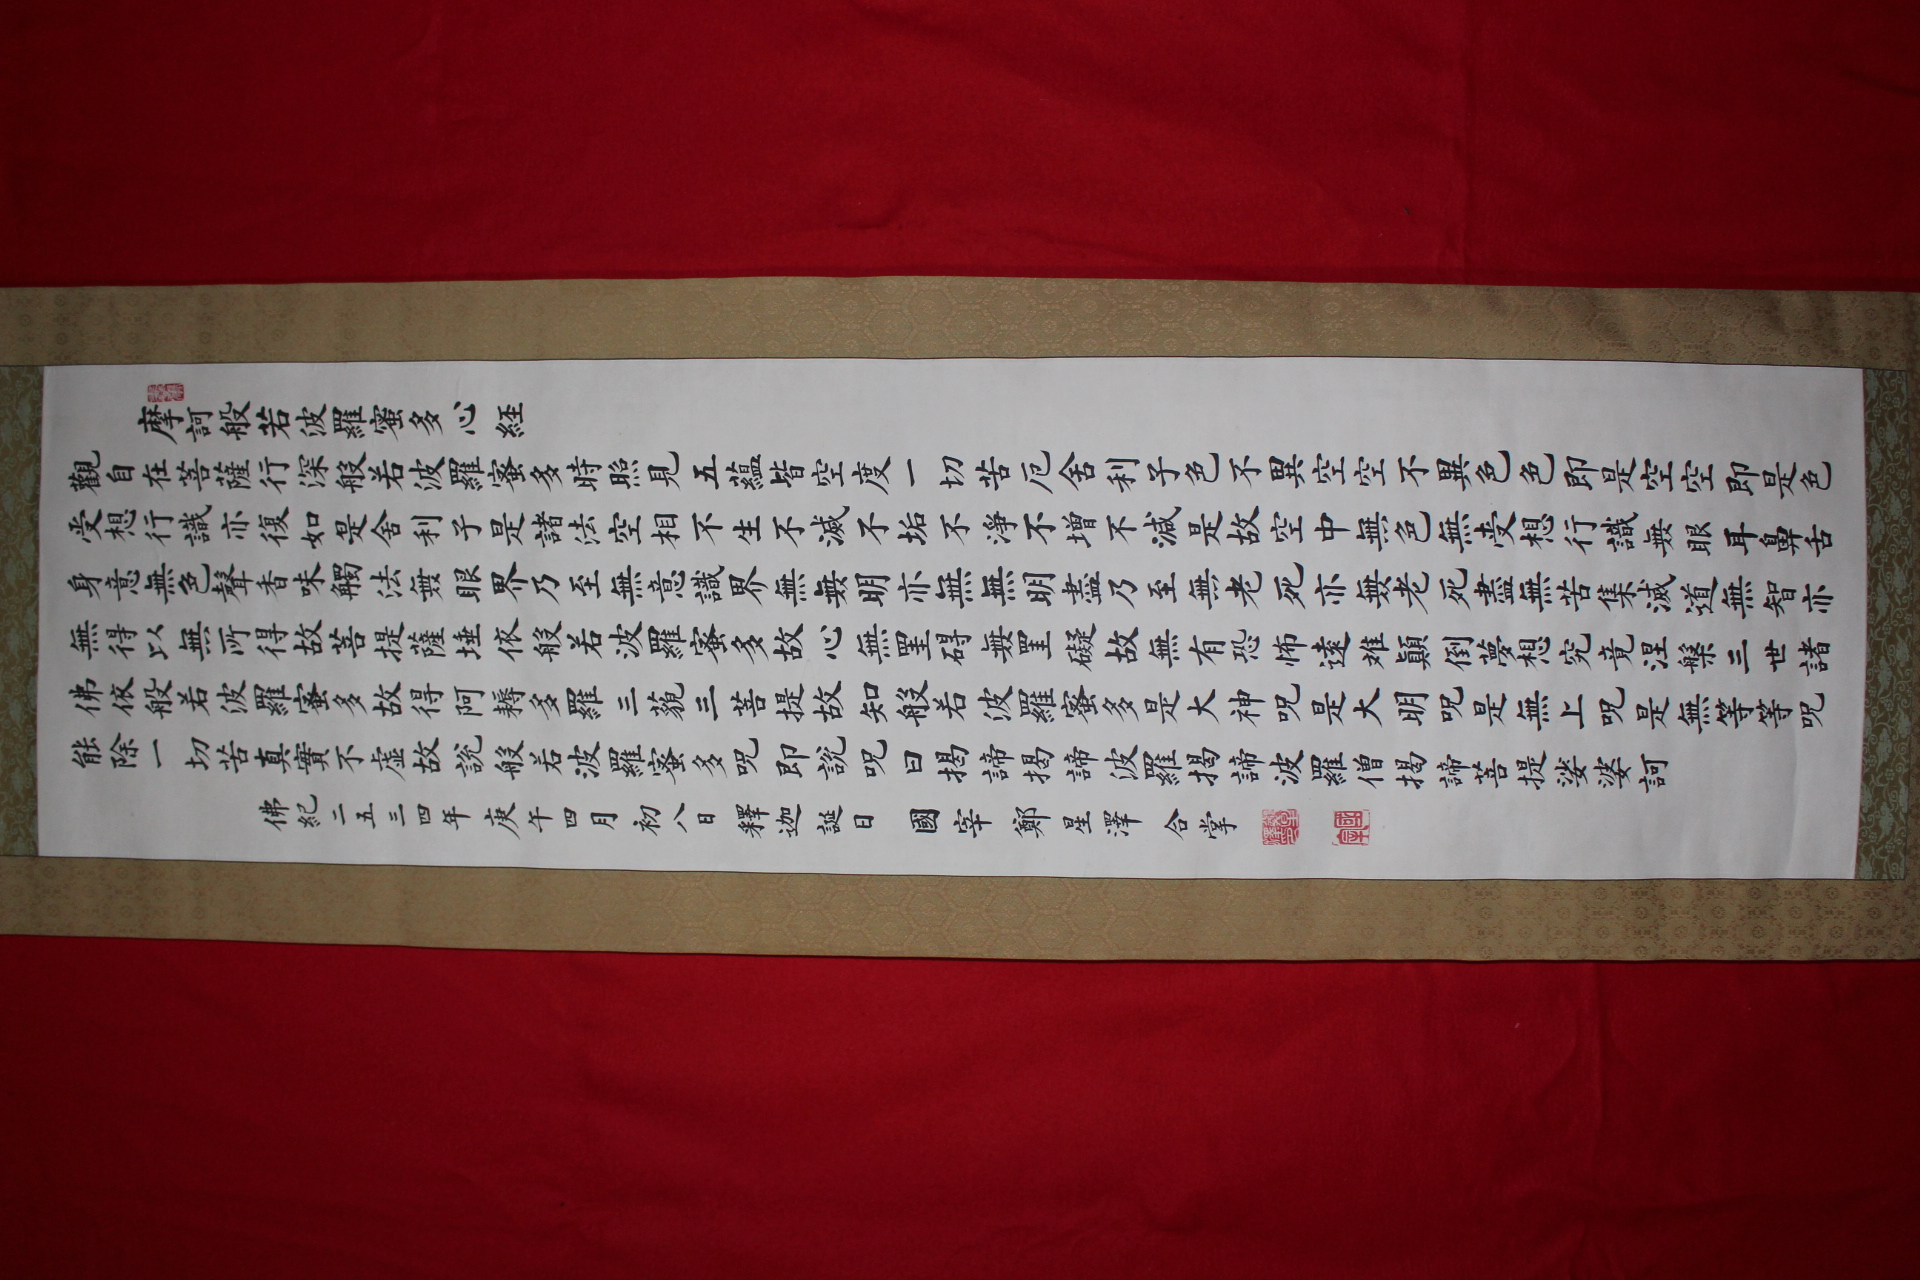 摩訶般若波羅蜜多心経
觀自在菩薩行深般若波羅蜜多時照見五蘊皆空度一切苦厄舍利子色不異空空不異色色即是空空即是色
受想行識亦復如是舍利子是諸法空相不生不滅不垢不淨不增不減是故空中無色無受想行識無眼耳鼻舌
身意無色聲香味觸法無眼界乃至無意識界無無明亦無無明盡乃至無老死亦無老死盡無苦集滅道無智亦
無得以無所得故菩提薩埵依般若波羅蜜多故心無罣碍無罣礙故無有恐怖遠離顛倒夢想究竟涅槃三世諸
佛依般若波羅蜜多故得阿耨多羅三藐三菩提故知般若波羅蜜多是大神呪是大明呪是無上呪是無等等呪
能除一切苦真實不虛故說般若波羅蜜多呪即說呪曰揭諦揭諦波羅揭諦波羅僧揭諦菩提娑婆訶
佛紀二五三四年庚午四月初八日釋迦誕日 國宰鄭星澤合掌
國宰